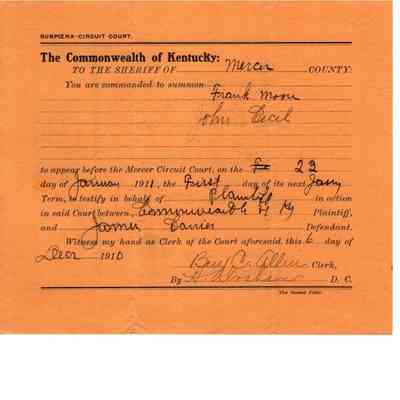 SUBPŒNA-CIRCUIT COURT.
The Commonwealth of Kentucky:
TO THE SHERIFF OF Mercer COUNTY:
You are commanded to summon Frank Moore
John Cecil
to appear before the Mercer Circuit Court, on the 23
day of January 1911, the First day of its next Jany
Term, to testify in behalf of Plaintiff in action
in said Court between, Commonwealth of Ky Plaintiff,
and James Carrier Defendant.
Witness my hand as Clerk of the Court aforesaid, this 6 day of
Decr 1910
Ben C. Allin Clerk,
By D. C.